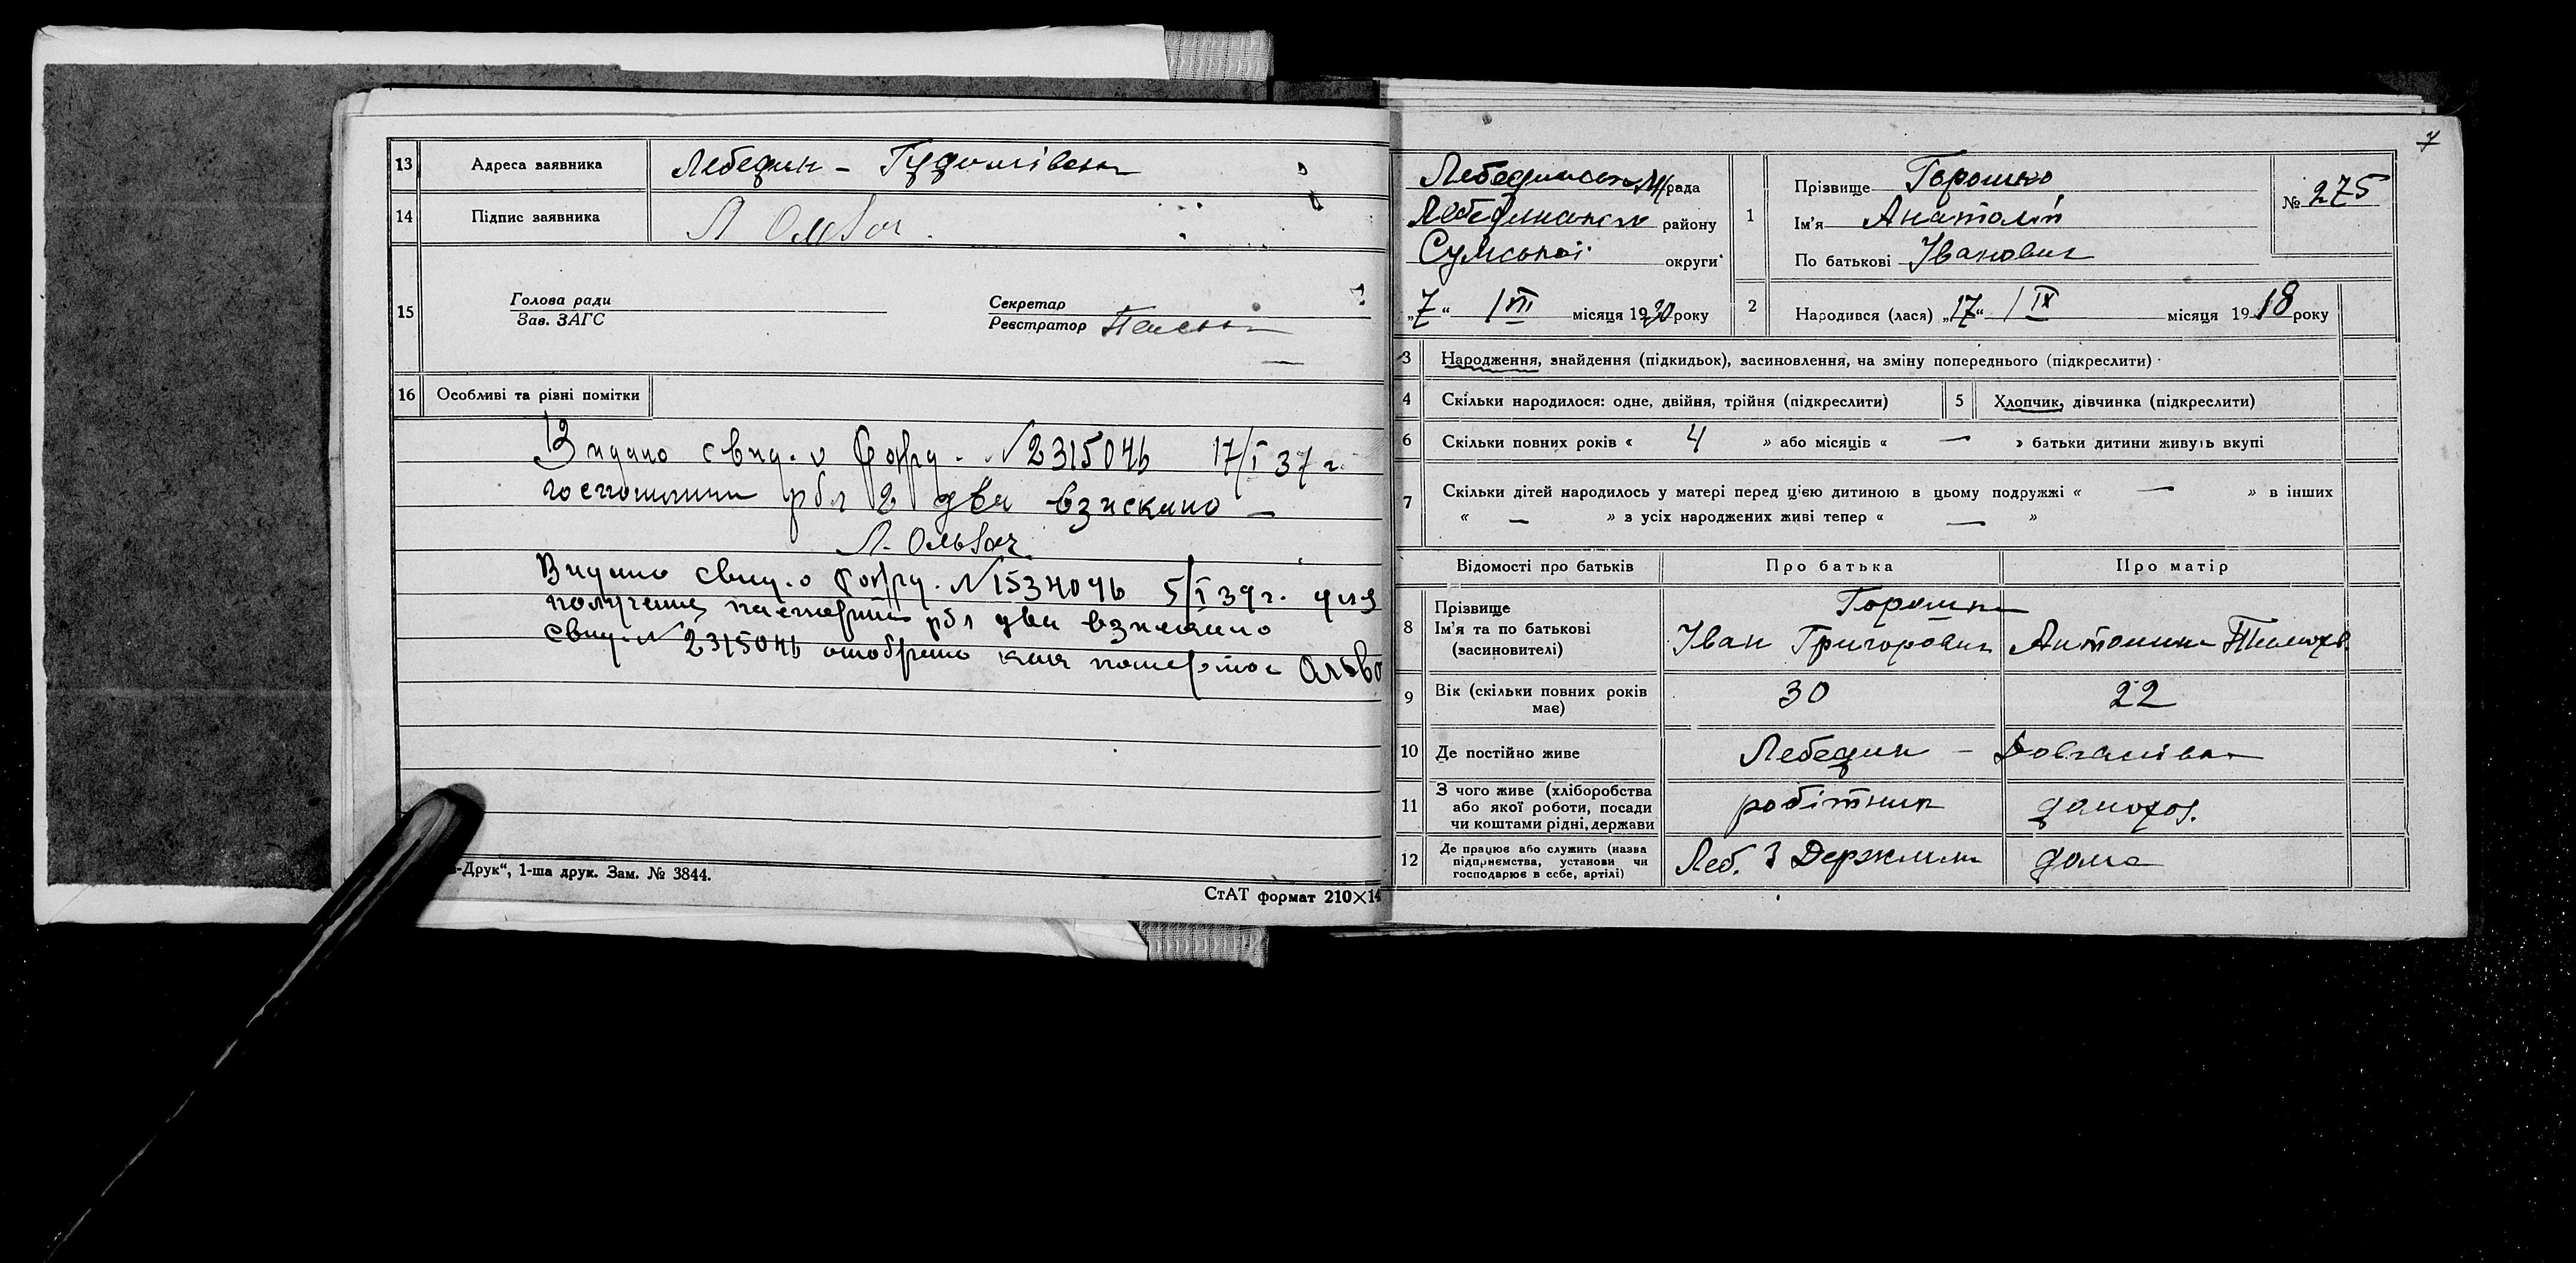 13 Адреса заявника Лебедин -
14 Підпис заявника Л Ольвач
15 Голова ради
Зав. ЗАГС
Секретар
Реєстратор
16 Особливі та різні помітки
Видано свид. о № 2315046 17/I 37 г.
госпошлины рбл 2 два взискано —
Л. Ольвач
Видано свид. о № 1534046 5/I 39 г. для
получения рбл два взискано
свид. № 2315046 отобрано как
-Друк“, 1-ша друк. Зам. № 3844.
СтАТ формат 210×14
7
рада
району
Сумської округи
„7“ / VII місяця 1930 року
1 Прізвище Горошко
Ім'я Анатолій
По батькові Іванович
№ 275
2 Народився (лася) „17“ / IX місяця 1918 року
3 Народження, знайдення (підкидьок), засиновлення, на зміну попереднього (підкреслити)
4 Скільки народилося: одне, двійня, трійня (підкреслити) 5 Хлопчик, дівчинка (підкреслити)
6 Скільки повних років « 4 » або місяців « — » батьки дитини живуть вкупі
7 Скільки дітей народилось у матері перед цією дитиною в цьому подружжі « — » в інших
« — » з усіх народжених живі тепер « — »
Відомості про батьків Про батька Про матір
8 Прізвище
Ім'я та по батькові
(засиновителі)
Горошко
Іван Григорович Антонина
9 Вік (скільки повних років має) 30 22
10 Де постійно живе Лебедин -
11 З чого живе (хліборобства
або якої роботи, посади
чи коштами рідні, держави
робітник домохоз.
12 Де працює або служить (назва
підприємства, установи чи
господарює в себе, артілі)
Леб. дома